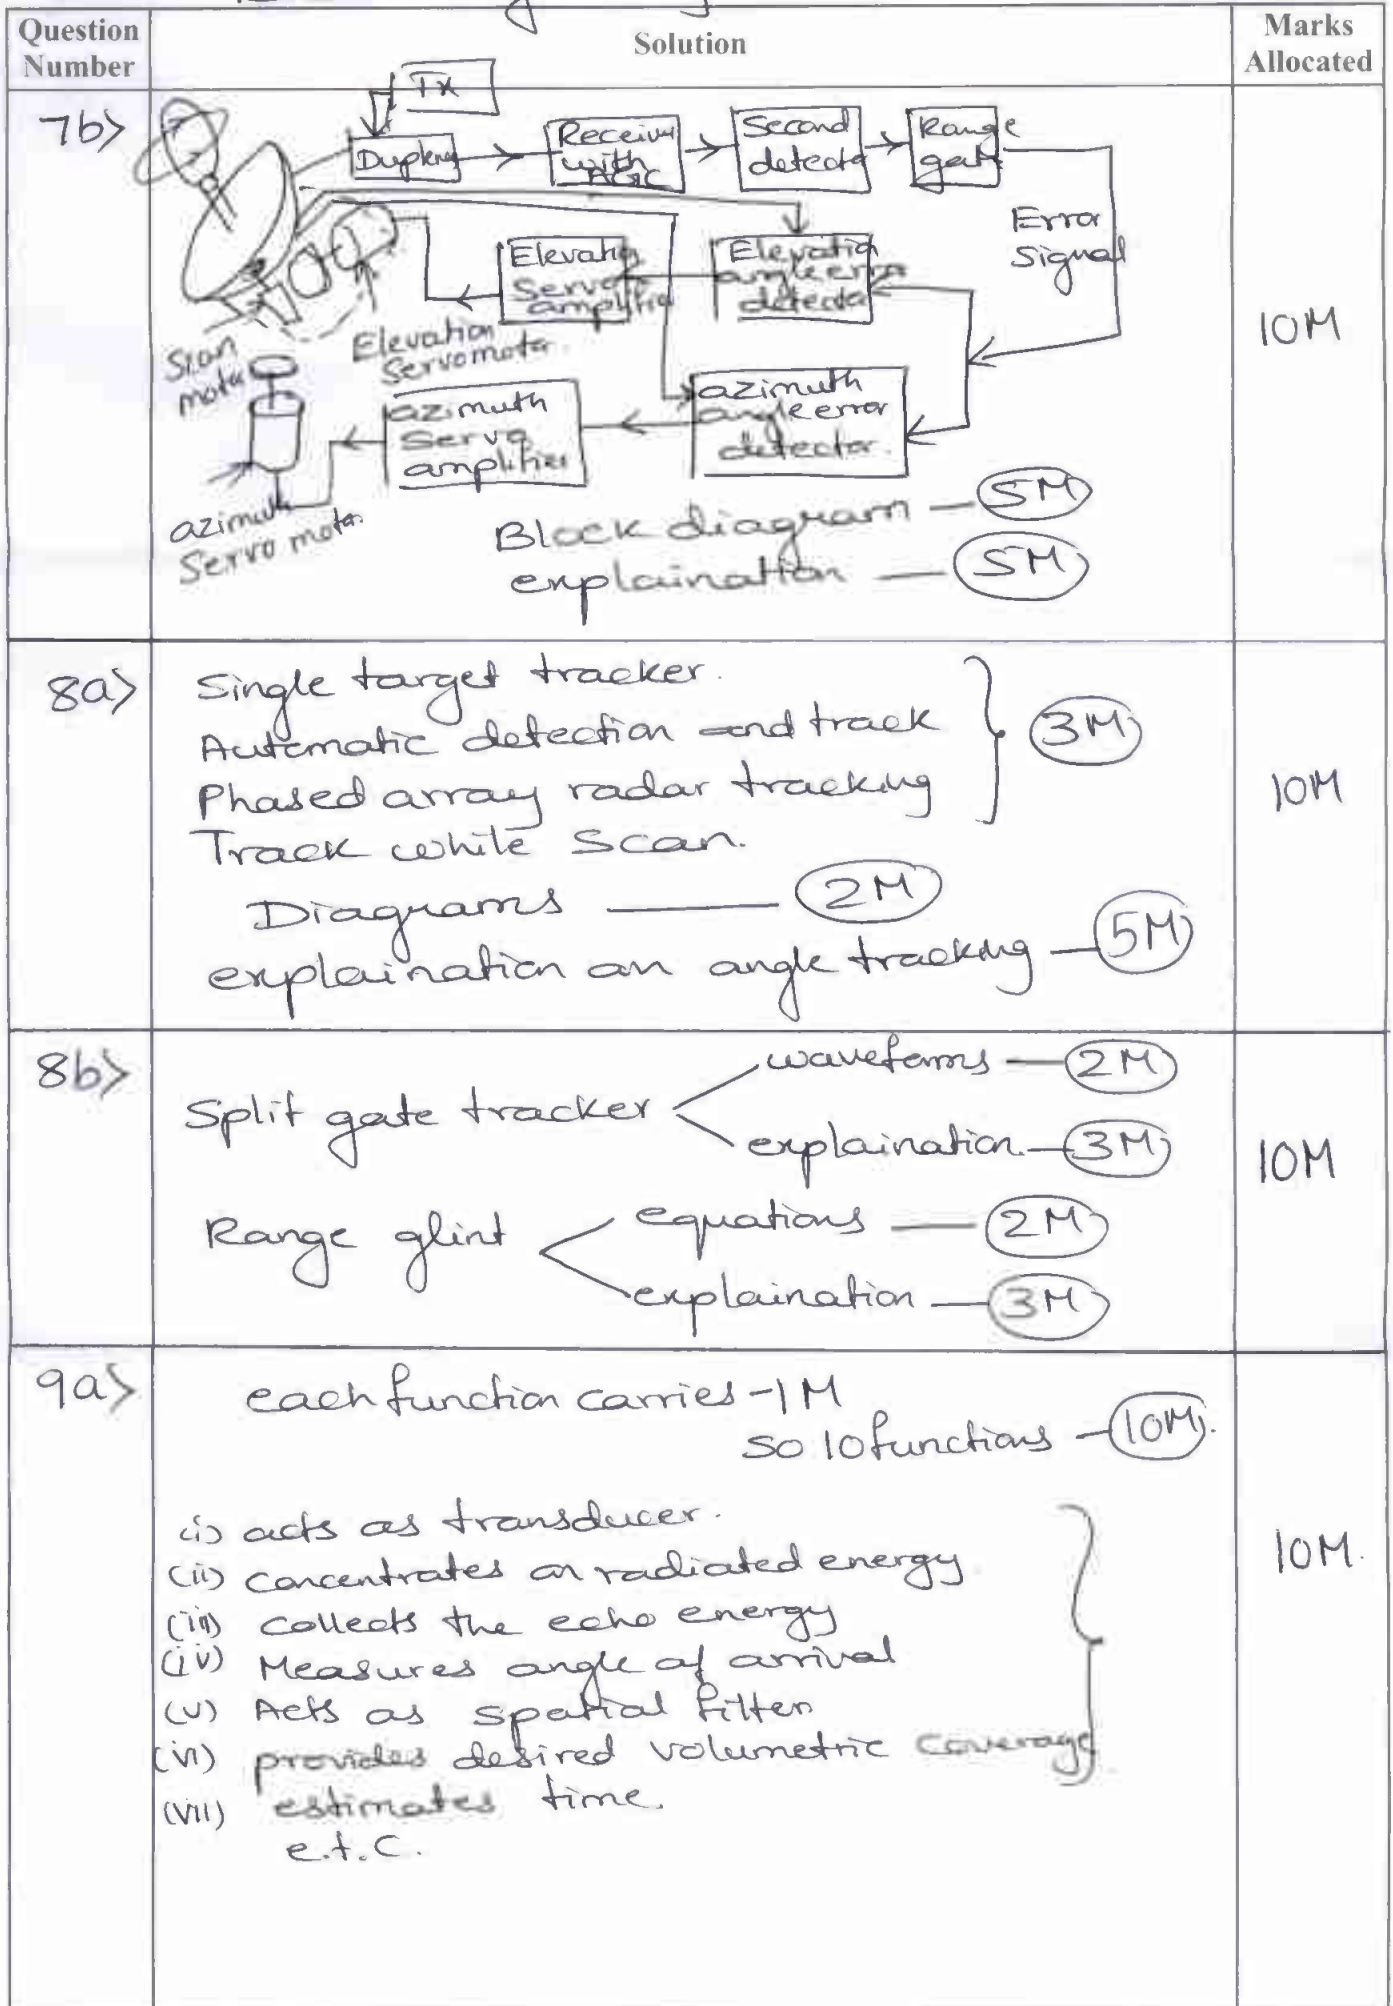 Question Number
Solution
Marks Allocated
7b>
TX
Duplexer
Receiver with AGC
Second detector
Range gate
Error Signal
Elevation Servo amplifier
Elevation angle error detector
Scan motor
Elevation Servomotor.
azimuth Servo amplifier
azimuth angle error detector.
azimuth Servo motor.
Block diagram — 5M
explaination — 5M
10M
8a>
Single target tracker.
Automatic detection and track
Phased array radar tracking
3M
Track while Scan.
Diagrams — 2M
explaination on angle tracking — 5M
10M
8b>
Split gate tracker
waveforms — 2M
explaination. — 3M
Range glint
equations — 2M
explaination — 3M
10M
9a>
each function carries - 1M
so 10 functions - 10M.
(i) acts as transducer.
(ii) concentrates on radiated energy
(iii) collects the echo energy
(iv) Measures angle of arrival
(v) Acts as spatial filter
(vi) provides desired volumetric coverage
(vii) estimates time.
e.t.c.
10M.